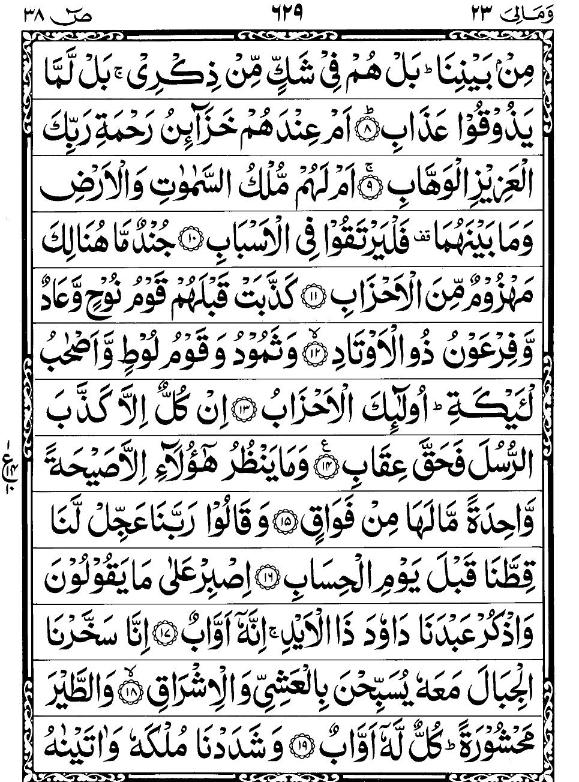 وَمَالِیَ ٢٣ ٦٢٩ صٓ ٣٨
مِنْۢ بَيْنِنَا ؕ بَلْ هُمْ فِیْ شَكٍّ مِّنْ ذِكْرِیْ ۚ بَلْ لَّمَّا
يَذُوْقُوْا عَذَابِ ؕ ﴿٨﴾ اَمْ عِنْدَهُمْ خَزَآئِنُ رَحْمَةِ رَبِّكَ
الْعَزِيْزِ الْوَهَّابِ ۚ ﴿٩﴾ اَمْ لَهُمْ مُّلْكُ السَّمٰوٰتِ وَالْاَرْضِ
وَمَا بَيْنَهُمَا قف فَلْيَرْتَقُوْا فِی الْاَسْبَابِ ﴿١٠﴾ جُنْدٌ مَّا هُنَالِكَ
مَهْزُوْمٌ مِّنَ الْاَحْزَابِ ﴿١١﴾ كَذَّبَتْ قَبْلَهُمْ قَوْمُ نُوْحٍ وَّعَادٌ
وَّفِرْعَوْنُ ذُو الْاَوْتَادِ ۙ ﴿١٢﴾ وَثَمُوْدُ وَقَوْمُ لُوْطٍ وَّاَصْحٰبُ
لْـَٔيْكَةِ ؕ اُولٰٓئِكَ الْاَحْزَابُ ﴿١٣﴾ اِنْ كُلٌّ اِلَّا كَذَّبَ
الرُّسُلَ فَحَقَّ عِقَابِ ع ﴿١٤﴾ وَمَا يَنْظُرُ هٰٓؤُلَآءِ اِلَّا صَيْحَةً
ع ١ ١٤ ١٠
وَّاحِدَةً مَّا لَهَا مِنْ فَوَاقٍ ﴿١٥﴾ وَقَالُوْا رَبَّنَا عَجِّلْ لَّنَا
قِطَّنَا قَبْلَ يَوْمِ الْحِسَابِ ﴿١٦﴾ اِصْبِرْ عَلٰی مَا يَقُوْلُوْنَ
وَاذْكُرْ عَبْدَنَا دَاوٗدَ ذَا الْاَيْدِ ۚ اِنَّهٗۤ اَوَّابٌ ﴿١٧﴾ اِنَّا سَخَّرْنَا
الْجِبَالَ مَعَهٗ يُسَبِّحْنَ بِالْعَشِیِّ وَالْاِشْرَاقِ ۙ ﴿١٨﴾ وَالطَّيْرَ
مَحْشُوْرَةً ؕ كُلٌّ لَّهٗۤ اَوَّابٌ ﴿١٩﴾ وَشَدَدْنَا مُلْكَهٗ وَاٰتَيْنٰهُ